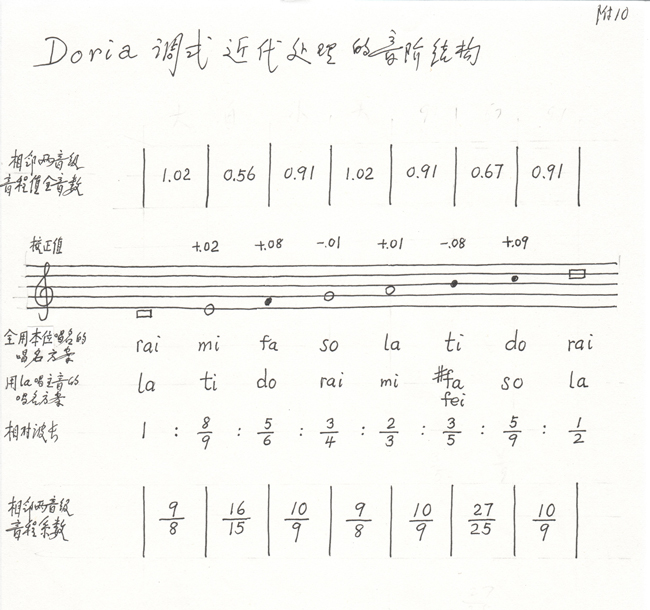 附10
Doria 调式近代处理的音阶结构
相邻两音级
音程值全音数
1.02 0.56 0.91 1.02 0.91 0.67 0.91
校正值 +.02 +.08 -.01 +.01 -.08 +.09
全用本位唱名的
唱名方案
rai mi fa so la ti do rai
用la唱主音的
唱名方案
la ti do rai mi #fa so la
fei
相对波长 1 : 8/9 : 5/6 : 3/4 : 2/3 : 3/5 : 5/9 : 1/2
相邻两音级
音程系数
9/8 16/15 10/9 9/8 10/9 27/25 10/9